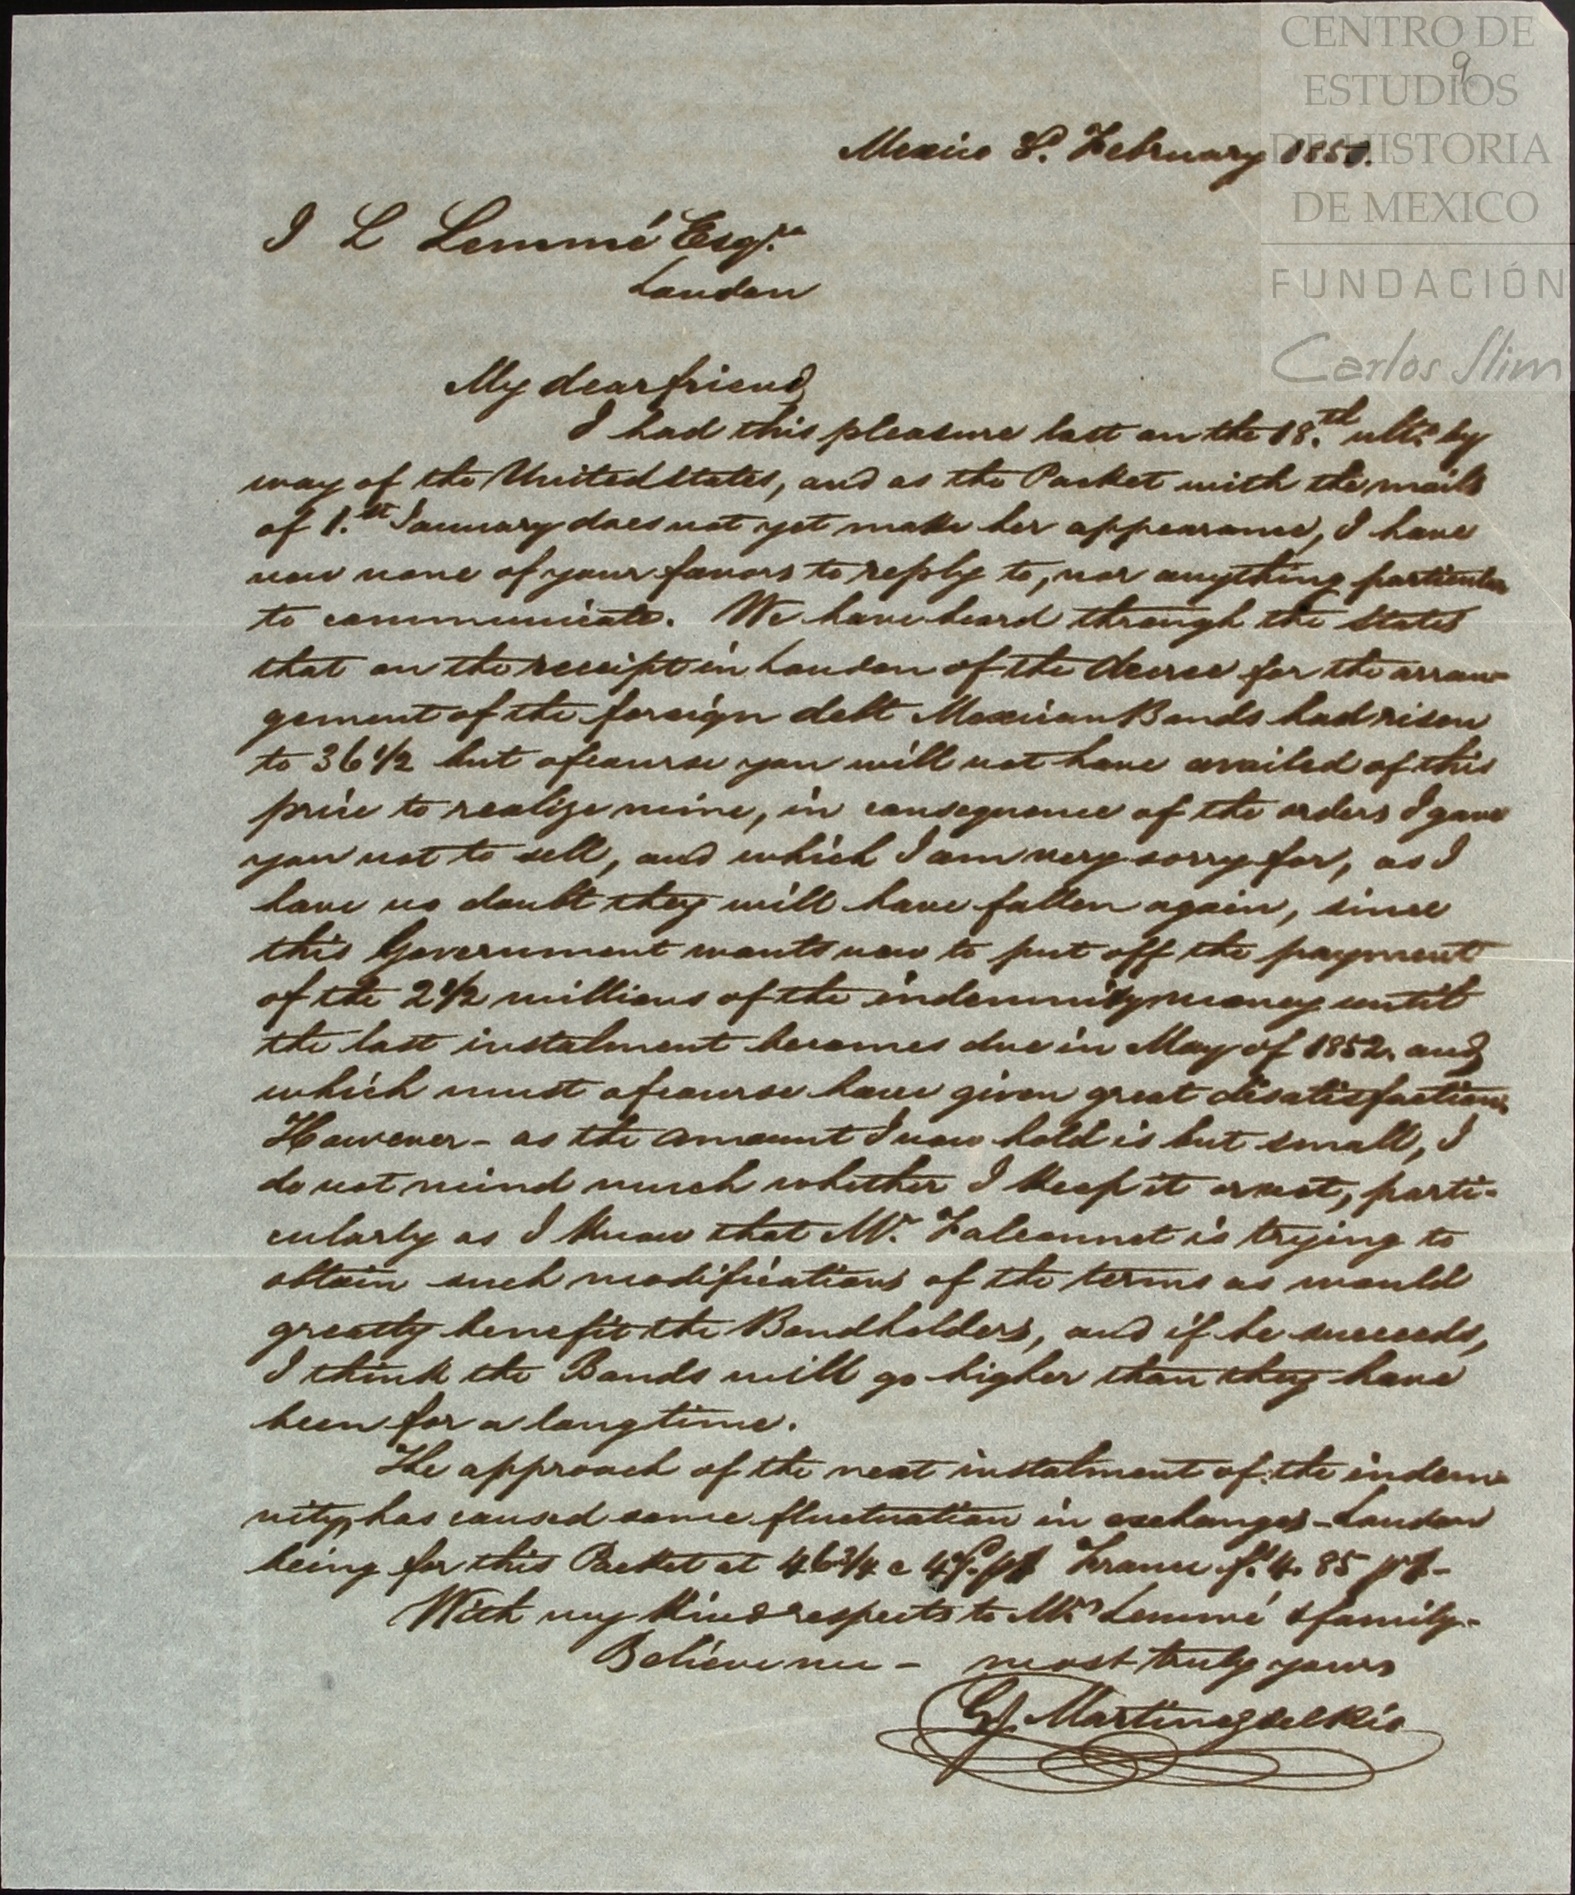 CENTRO DE
ESTUDIOS
DE HISTORIA
DE MEXICO
FUNDACIÓN
Carlos Slim
9
Mexico 8. February 1851.
I L Lemmé Esqr.
London
My dear friend
I had this pleasure last on the 18.th ulto. by
way of the United States, and as the Packet with the mails
of 1.st January does not yet make her appearance, I have
now none of your favors to reply to, nor anything particular
to communicate. We have heard through the States
that on the receipt in London of the decree for the arran-
gement of the foreign debt Mexican Bonds had risen
to 36 1/2 but ofcourse you will not have availed of this
price to realize mine, in consequence of the orders I gave
you not to sell, and which I am very sorry for, as I
have no doubt they will have fallen again, since
this Government wants now to put off the payment
of the 2 1/2 millions of the indemnity money until
the last instalment becomes due in May of 1852. and
which must ofcourse have given great disatisfaction.
However - as the amount I now hold is but small, I
do not mind much whether I keep it or not, parti-
cularly as I know that Mr. Falconnet is trying to
obtain such modifications of the terms as would
greatly benefit the Bondholders, and if he succeeds,
I think the Bonds will go higher than they have
been for a long time.
The approach of the next instalment of the indem-
nity, has caused some fluctuation in exchanges - London
being for this Packet at 46 3/4 a France 4. 85
With my kind respects to Mrs Lemmé & family -
Believe me - most truly yours
G. Martinez del Rio